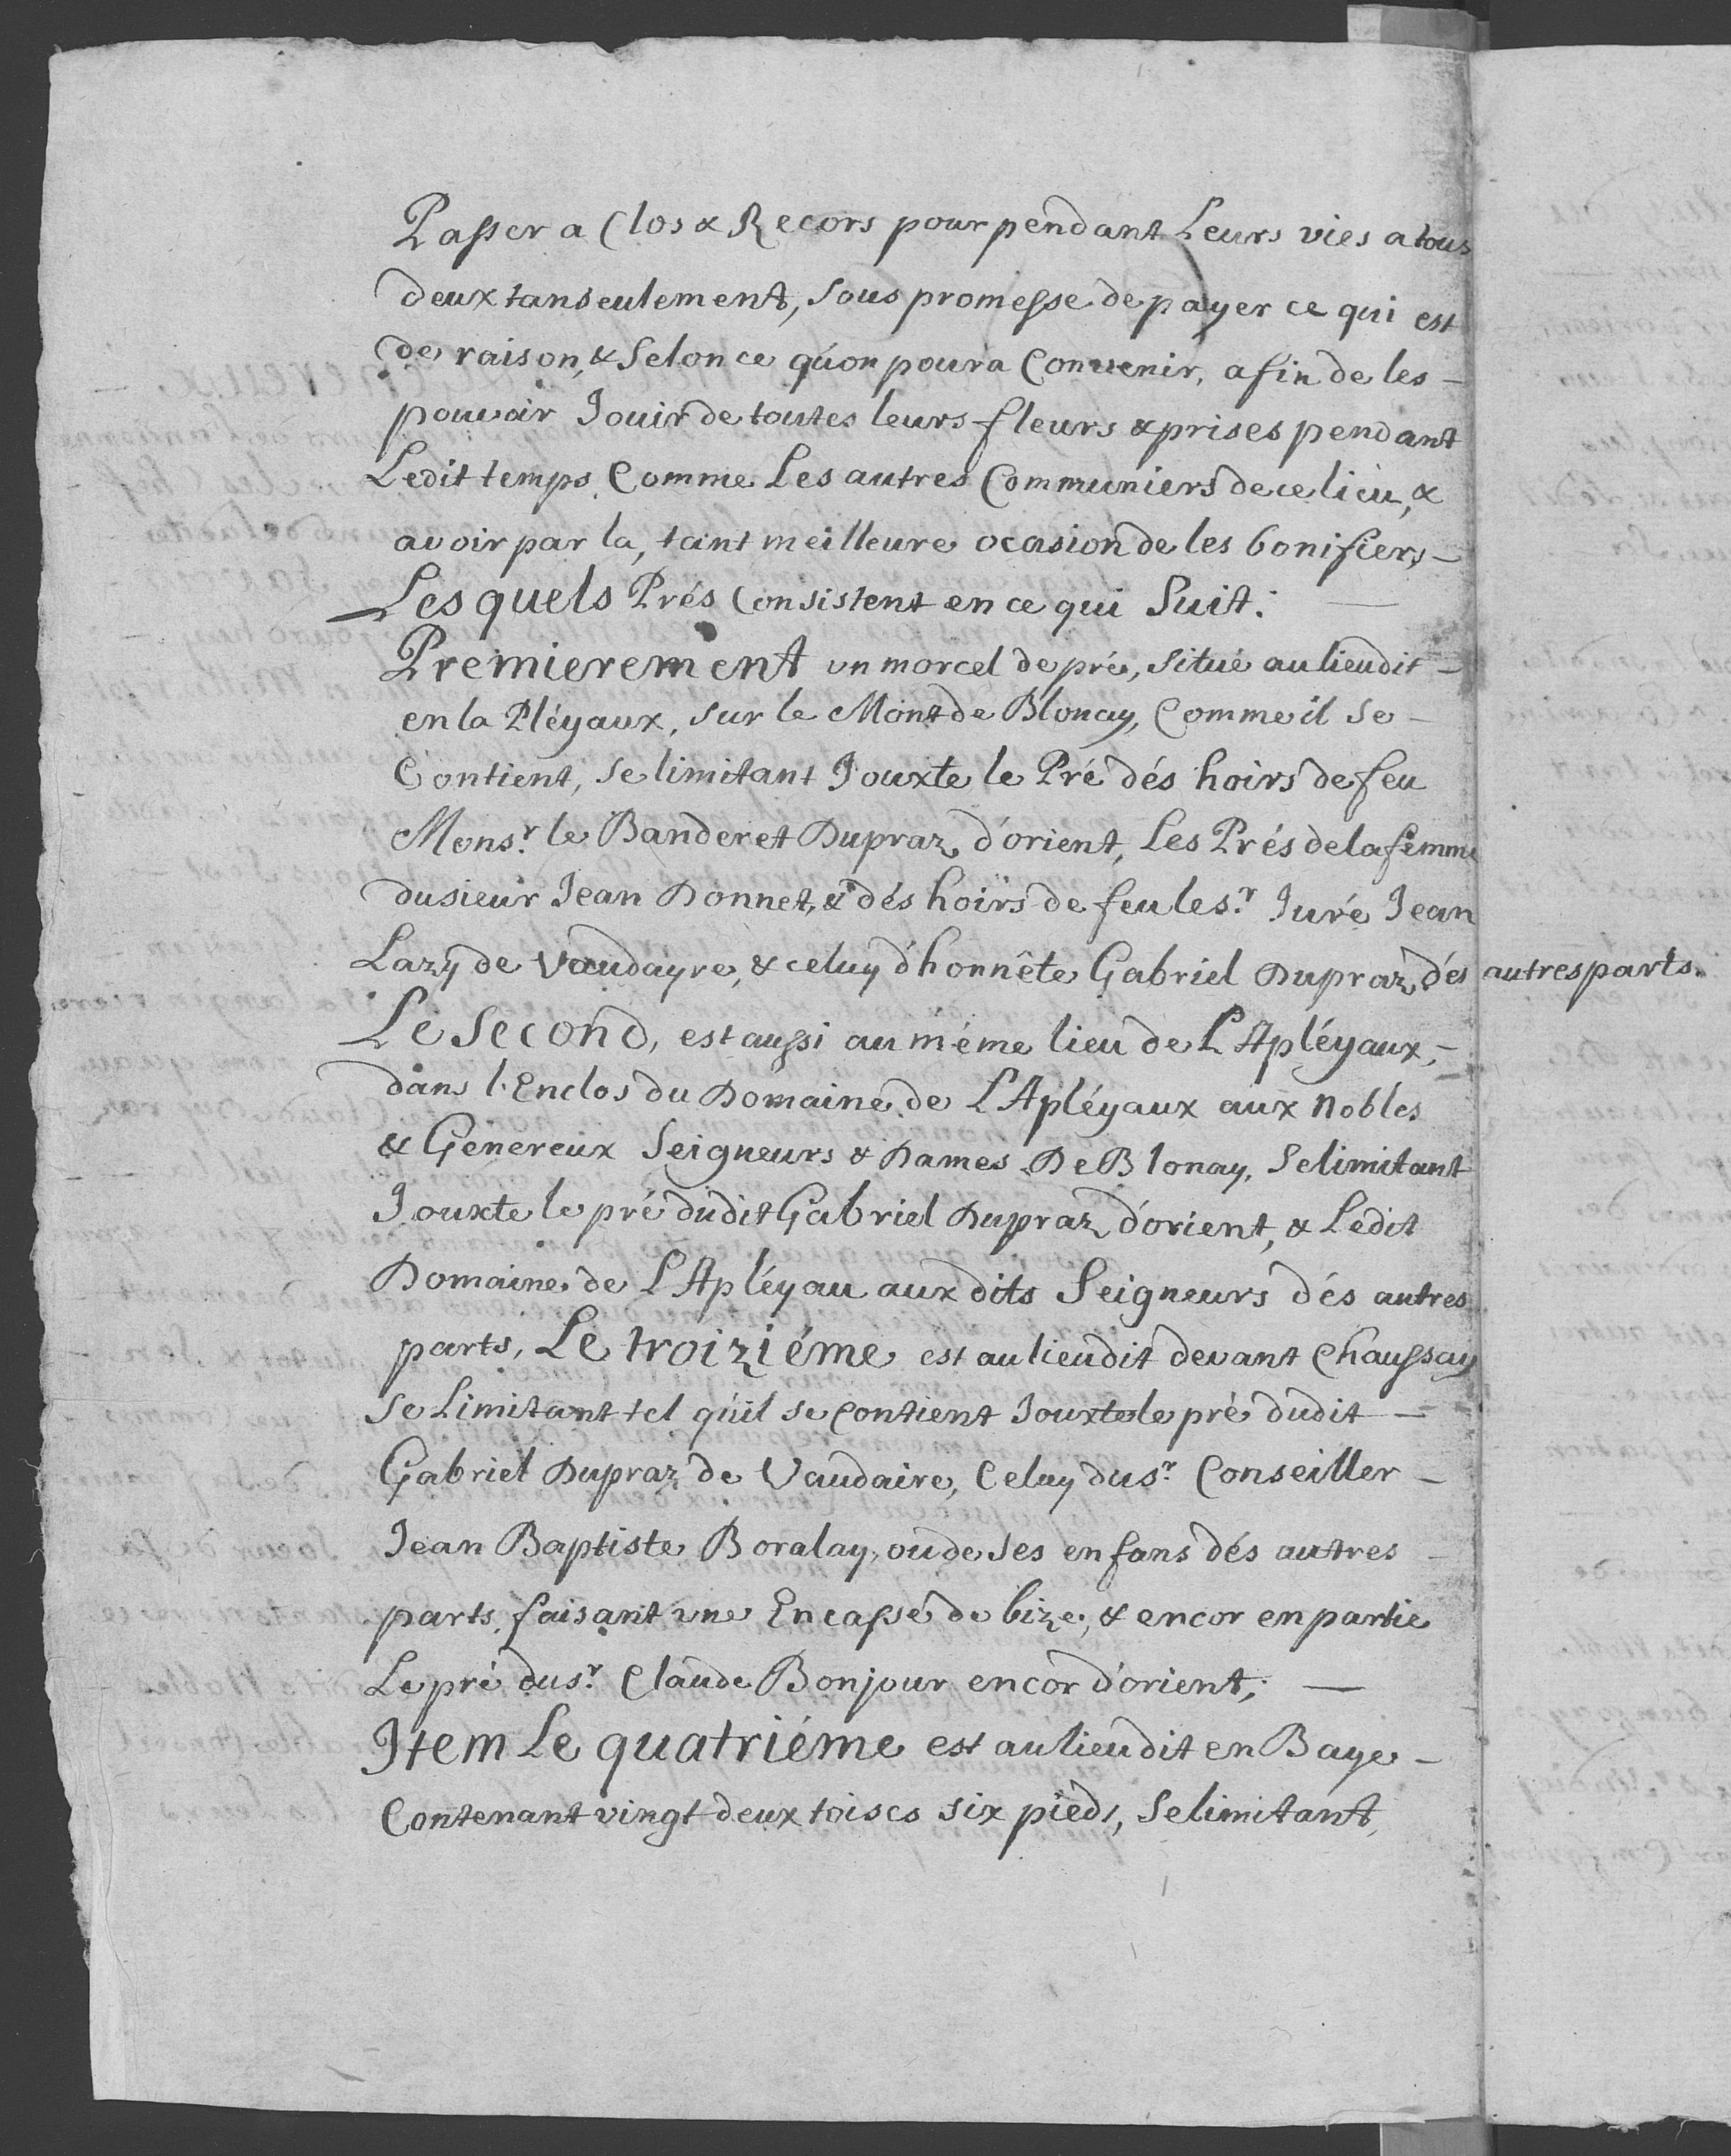 Passer a Clos & Recors pour pendant Leurs vies a tous
deux tanseulement, sous promesse de payer ce qui est
de raison, & Selon ce qu'on poura Convenir, afin de les —
pouvoir Jouir de toutes leurs fleurs & prises pendant
Ledit temps, Comme Les autres Communiers de ce lieu, &
avoir par la, tant meilleure ocasion de les bonifier, —
Lesquels Prés Consistent en ce qui Suit: —
Premierement un morcel de pré, situé au lieu dit —
en la Pléyaux, sur le Mont de Blonay, Comme il se —
Contient, se limitant Jouxte le Pré dés hoirs de feu
Monsr. le Banderet Dupraz d'orient, Les Prés de la femme
du sieur Jean Donnet, & dés hoirs de feu le sr. Juré Jean
Lazy de Vaudayre, & celuy d'honnête Gabriel Dupraz dés autres parts.
Le Second, est aussi au méme lieu de L'Apléyaux, —
dans l'Enclos du Domaine de L'Apléyaux aux Nobles
& Génereux Seigneurs & Dames De Blonay, Se limitant
Jouxte le pré dudit Gabriel Dupraz d'orient, & Ledit
Domaine de L'Apléyau aux dits Seigneurs dés autres
parts, Le troiziéme est au lieu dit devant Chaussay
se Limitant tel qu'il se Contient Jouxte le pré dudit —
Gabriel Dupraz de Vaudaire, Celuy du sr. Conseiller —
Jean Baptiste Boralay, ou de ses enfans dés autres —
parts, faisant une Encasse de bize, & encor en partie
Le pré du sr. Claude Bonjour encor d'orient; —
Item Le quatriéme est au lieu dit en Baye —
Contenant vingt deux toises six pieds, Se limitant,